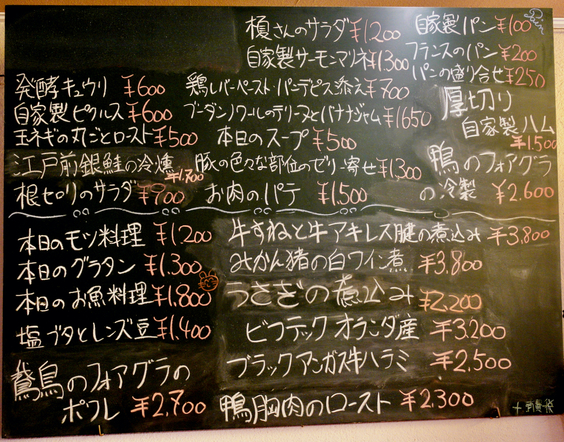 榎さんのサラダ ¥1200
自家製サーモンマリネ ¥1300
自家製パン ¥100
フランスのパン ¥200
パンの盛り合せ ¥250
発酵キュウリ ¥600
自家製ピクルス ¥600
玉ネギの丸ごとロースト ¥500
江戸前銀鮭の冷燻 ¥1,700
根セロリのサラダ ¥700
鶏レバーペースト・パーデピス添え ¥700
ブーダンノワールのテリーヌとバナナジャム ¥1650
本日のスープ ¥500
豚の色々な部位のゼリー寄せ ¥1,300
お肉のパテ ¥1,500
厚切り
自家製ハム
¥1,500
鴨のフォアグラ
の冷製 ¥2,600
本日のモツ料理 ¥1,200
本日のグラタン ¥1,300
本日のお魚料理 ¥1,800
塩ブタとレンズ豆 ¥1,400
鵞鳥のフォアグラの
ポワレ ¥2,700
牛すねと牛アキレス腱の煮込み ¥3,800
みかん猪の白ワイン煮 ¥3,800
うさぎの煮込み ¥2,200
ビフテック オランダ産 ¥3,200
ブラックアンガス牛ハラミ ¥2,500
鴨胸肉のロースト ¥2,300